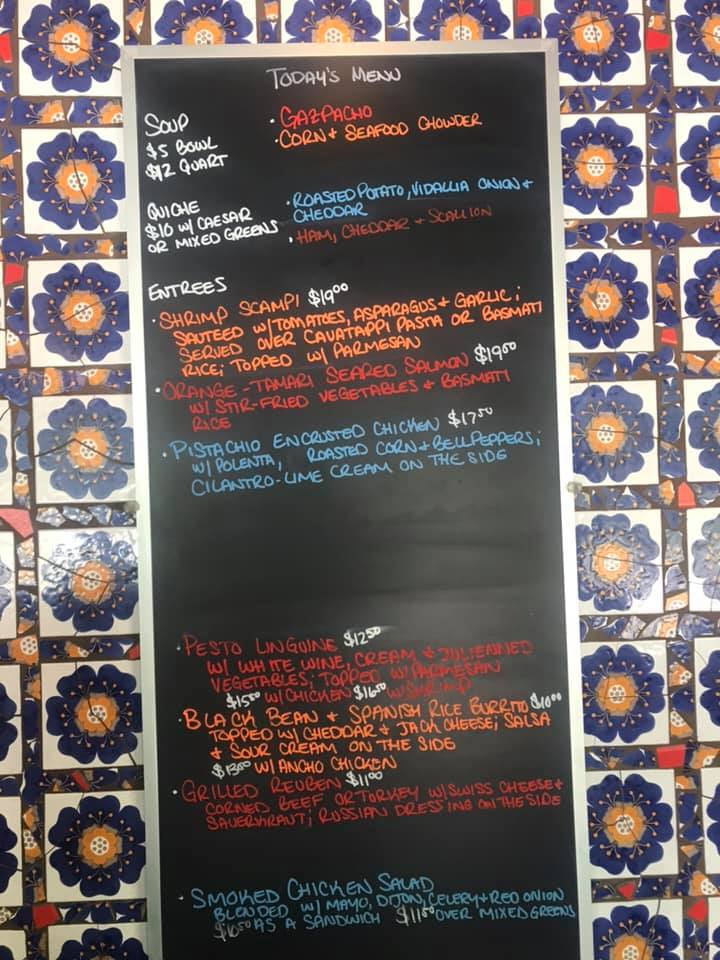 TODAY'S MENU
SOUP
$5 BOWL
$12 QUART
• GAZPACHO
• CORN + SEAFOOD CHOWDER
QUICHE
$10 W/ CAESAR
OR MIXED GREENS
• ROASTED POTATO, VIDALLIA ONION +
CHEDDAR
• HAM, CHEDDAR + SCALLION
ENTREES
• SHRIMP SCAMPI $19.00
SAUTEED W/TOMATOES, ASPARAGUS + GARLIC;
SERVED OVER CAVATAPPI PASTA OR BASMATI
RICE; TOPPED W/ PARMESAN
• ORANGE-TAMARI SEARED SALMON $19.00
W/ STIR-FRIED VEGETABLES + BASMATI
RICE
• PISTACHIO ENCRUSTED CHICKEN $17.50
W/ POLENTA, ROASTED CORN + BELL PEPPERS;
CILANTRO-LIME CREAM ON THE SIDE
• PESTO LINGUINE $12.50
W/ WHITE WINE, CREAM + JULIENNED
VEGETABLES; TOPPED W/PARMESAN
W/CHICKEN W/SHRIMP
• BLACK BEAN + SPANISH RICE BURRITO $10.00
TOPPED W/ CHEDDAR + JACK CHEESE; SALSA
+ SOUR CREAM ON THE SIDE
W/ ANCHO CHICKEN
• GRILLED REUBEN $11.00
CORNED BEEF OR TURKEY W/SWISS CHEESE +
SAUERKRAUT; RUSSIAN DRESSING ON THE SIDE
• SMOKED CHICKEN SALAD
BLENDED W/ MAYO, DIJON, CELERY + RED ONION
AS A SANDWICH OVER MIXED GREENS